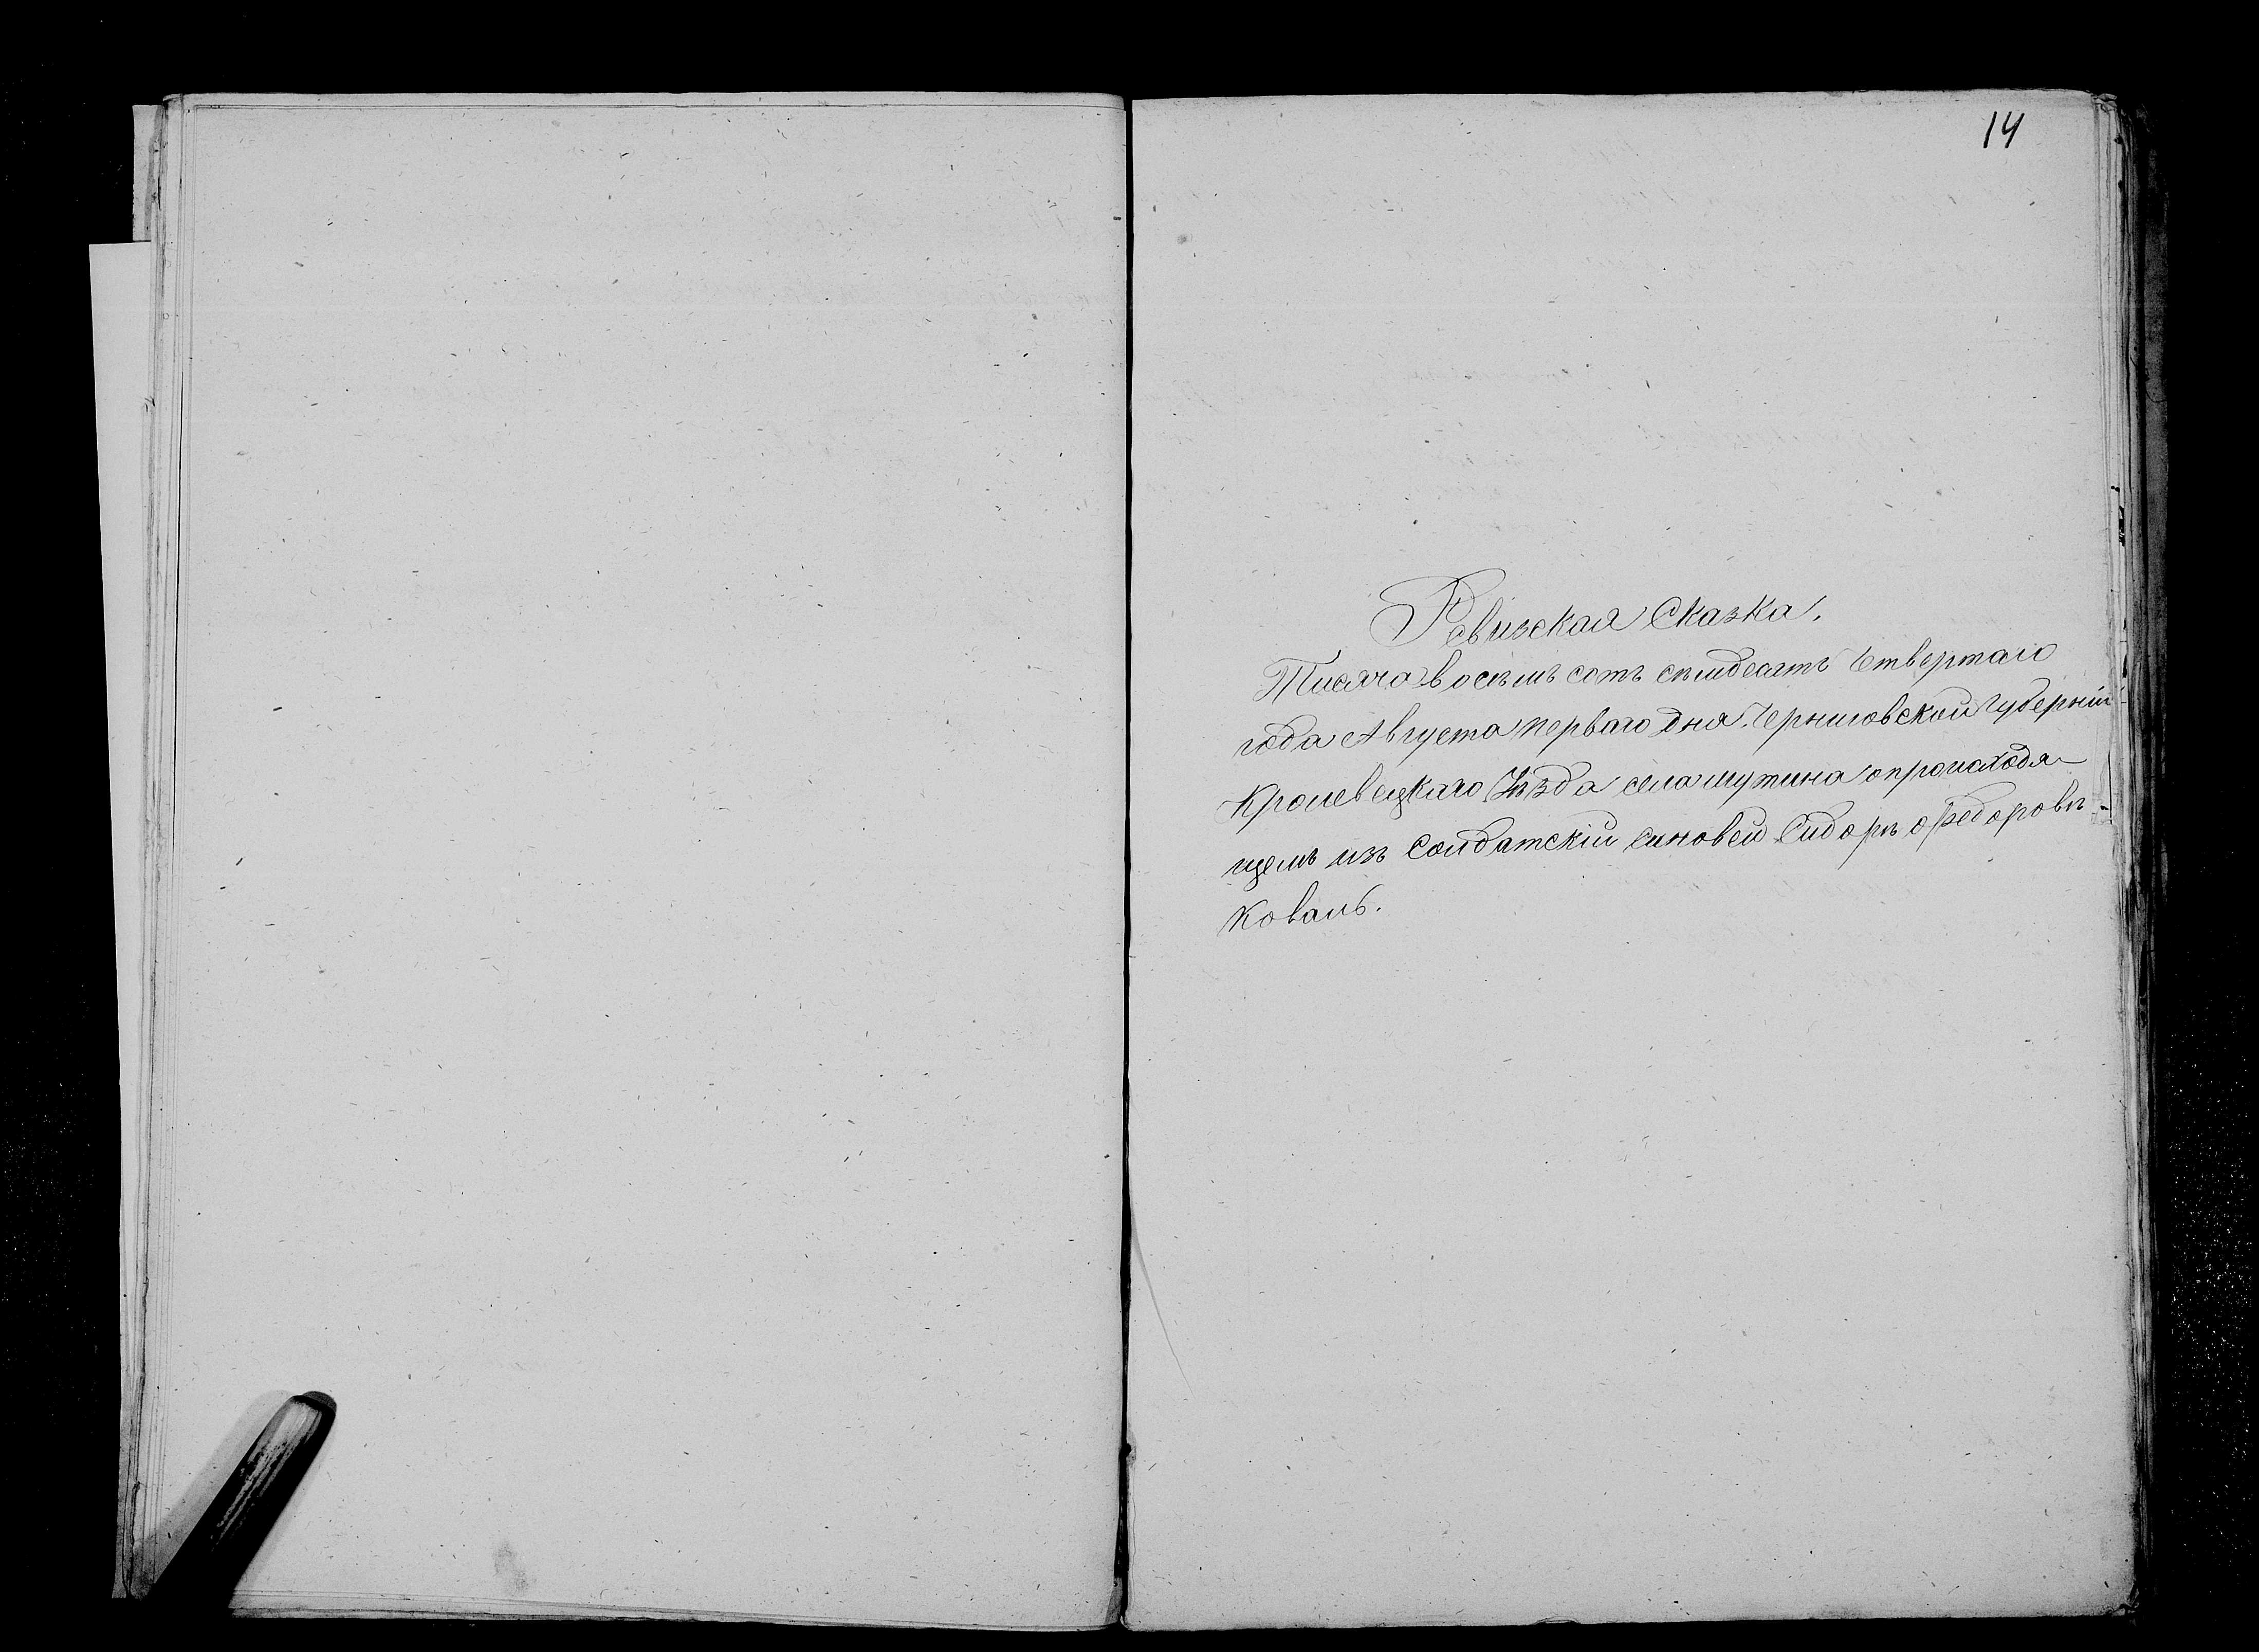 14
Ревизская Сказка.
Тисяча восемь сотъ семдесятъ Четвертаго
года Августа перваго дня. Черниговской Губерніи
Кролевецкаго Уѣзда села мутина о происходя-
щемъ изъ Солдатскій синовей Сидорѣ Федоровѣ
Коваль.